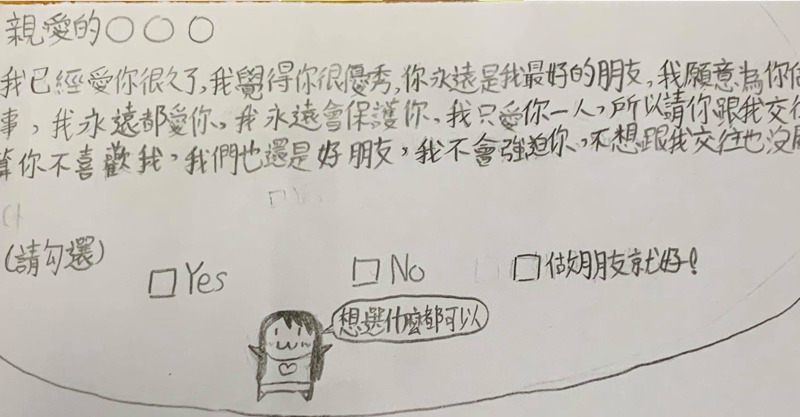 親愛的○○○
我已經愛你很久了,我覺得你很優秀,你永遠是我最好的朋友,我願意為你做
事,我永遠都愛你。我永遠會保護你。我只愛你一人,所以請你跟我交往
算你不喜歡我,我們也還是好朋友,我不會強迫你,不想跟我交往也沒
(請勾選)
□Yes □No □做朋友就好!
想選什麼都可以